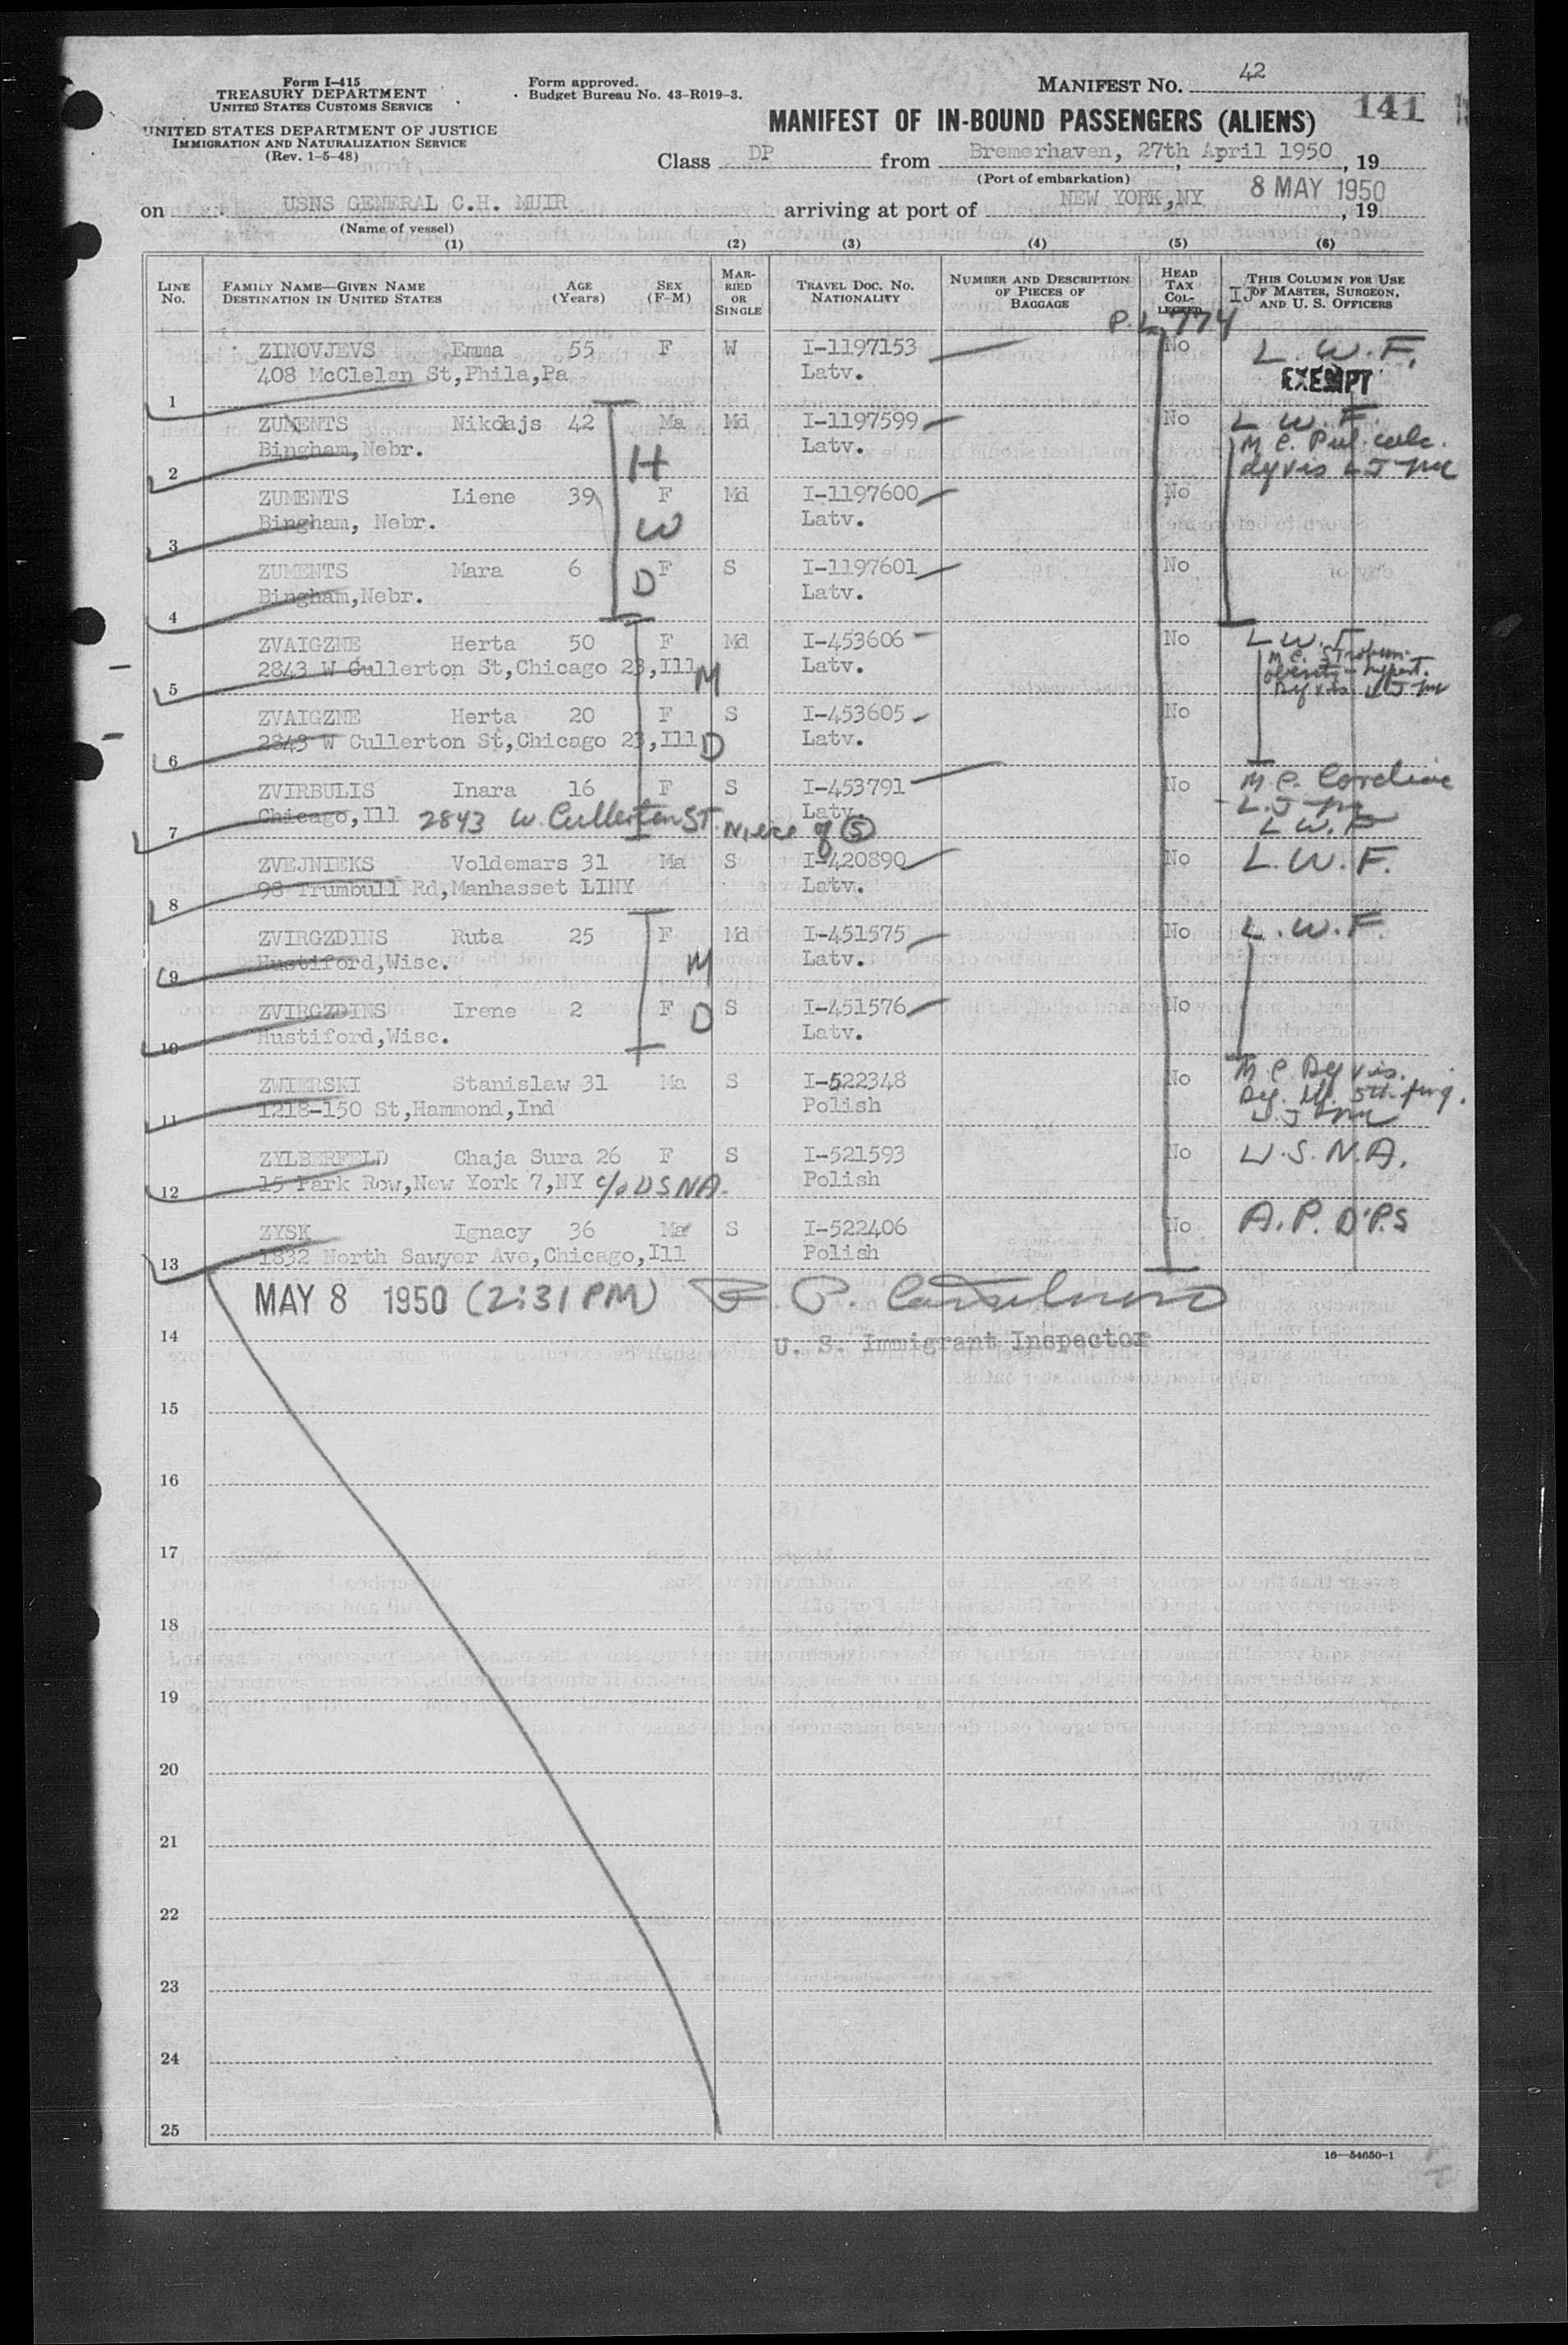 Form I-415
TREASURY DEPARTMENT
UNITED STATES CUSTOMS SERVICE
UNITED STATES DEPARTMENT OF JUSTICE
IMMIGRATION AND NATURALIZATION SERVICE
(Rev. 1-5-48)
Form approved.
Budget Bureau No. 43-R019-3.
MANIFEST NO. 42
MANIFEST OF IN-BOUND PASSENGERS (ALIENS) 141
Class DP from Bremerhaven, 27th April 1950, 19
(Port of embarkation)
on USNS GENERAL C.H. MUIR arriving at port of NEW YORK,NY 8 MAY 1950, 19
(Name of vessel)
(1) (2) (3) (4) (5) (6)
LINE NO.
FAMILY NAME—GIVEN NAME
DESTINATION IN UNITED STATES
AGE (Years)
SEX (F-M)
MARRIED OR SINGLE
TRAVEL DOC. NO.
NATIONALITY
NUMBER AND DESCRIPTION OF PIECES OF BAGGAGE
HEAD TAX COLLECTED
THIS COLUMN FOR USE OF MASTER, SURGEON, AND U. S. OFFICERS
P.L. 774
ZINOVJEVS Emma 55 F W I-1197153 No L.W.F.
408 McClelan St,Phila,Pa Latv. EXEMPT
1
ZUMENTS Nikolajs 42 Ma Md I-1197599 No L.W.F.
Bingham,Nebr. H Latv. M.C. Pul. calc.
2 dyvis L J
ZUMENTS Liene 39 F Md I-1197600 No
Bingham, Nebr. W Latv.
3
ZUMENTS Mara 6 F S I-1197601 No
Bingham,Nebr. D Latv.
4
ZVAIGZNE Herta 50 F Md I-453606 No L.W.F.
2843 W Cullerton St,Chicago 23,Ill M Latv. M.C.
5 obesity - hypert.
ZVAIGZNE Herta 20 F S I-453605 No
2843 W Cullerton St,Chicago 23,Ill D Latv.
6
ZVIRBULIS Inara 16 F S I-453791 No M.C. Cardiac
Chicago,Ill 2843 W. Cullerton ST. Niece of (5) Latv. L.J.
7 L.W.F
ZVEJNIEKS Voldemars 31 Ma S I-420890 No L.W.F.
98 Trumbull Rd,Manhasset LINY Latv.
8
ZVIRGZDINS Ruta 25 F Md I-451575 No L.W.F
Hustiford,Wisc. M Latv.
9
ZVIRGZDINS Irene 2 F D S I-451576 No
Hustiford,Wisc. Latv.
10
ZWIERSKI Stanislaw 31 Ma S I-522348 No M.C. Def vis.
1218-150 St,Hammond,Ind Polish Def. 5th fing.
11
ZYLBERFELD Chaja Sura 26 F S I-521593 No U.S.N.A.
15 Park Row,New York 7,NY c/o USNA. Polish
12
ZYSK Ignacy 36 Ma S I-522406 No A.P. D'P.S
1832 North Sawyer Ave,Chicago,Ill Polish
13
MAY 8 1950 (2:31 PM)
14 U. S. Immigrant Inspector
15
16
17
18
19
20
21
22
23
24
25
16—54650-1